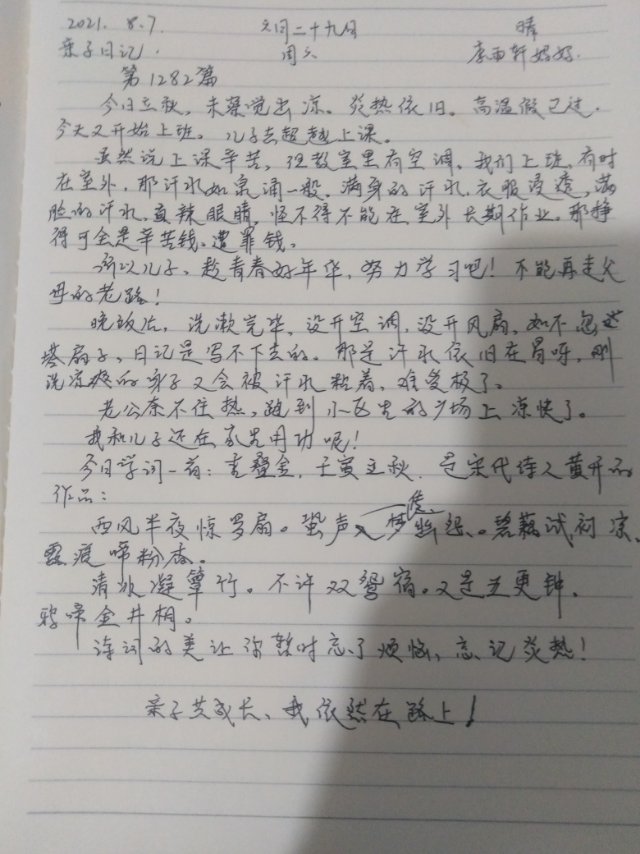 2021. 8.7. 六月二十九日 晴
亲子日记. 周六 李雨轩妈妈.
第1282篇
今日立秋，未菜觉出凉。炎热依旧。高温假已过.
今天又开始上班。儿子去超越上课。
虽然说上课辛苦，但教室里有空调，我们上班，有时
在室外，那汗水如泉涌一般，满身的汗水，衣服浸透，满
脸的汗水，直辣眼睛，怪不得不能在室外长期作业。那挣
得可会是辛苦钱、遭罪钱。
所以儿子，趁青春好年华，努力学习吧！不能再走父
母的老路！
晚饭后，洗漱完毕，没开空调，没开风扇，如不忽
扇子，日记是写不下去的。那是汗水依旧在冒呀，刚
洗凉爽的身子又会被汗水粘着，难受极了。
老公奈不住热，跑到小区里的广场上凉快了。
我和儿子还在家里用功呢！
今日学词一首：吉叠金，壬寅立秋，是宋代诗人黄升的
作品：
西风半夜惊罗扇。蛩声入梦传幽怨。碧藕试初凉，
露痕啼粉香。
清冰凝簟竹。不许双鸳宿。又是五更钟，
鸦啼金井桐。
诗词的美让你暂时忘了烦恼，忘记炎热！
亲子共成长，我依然在路上！